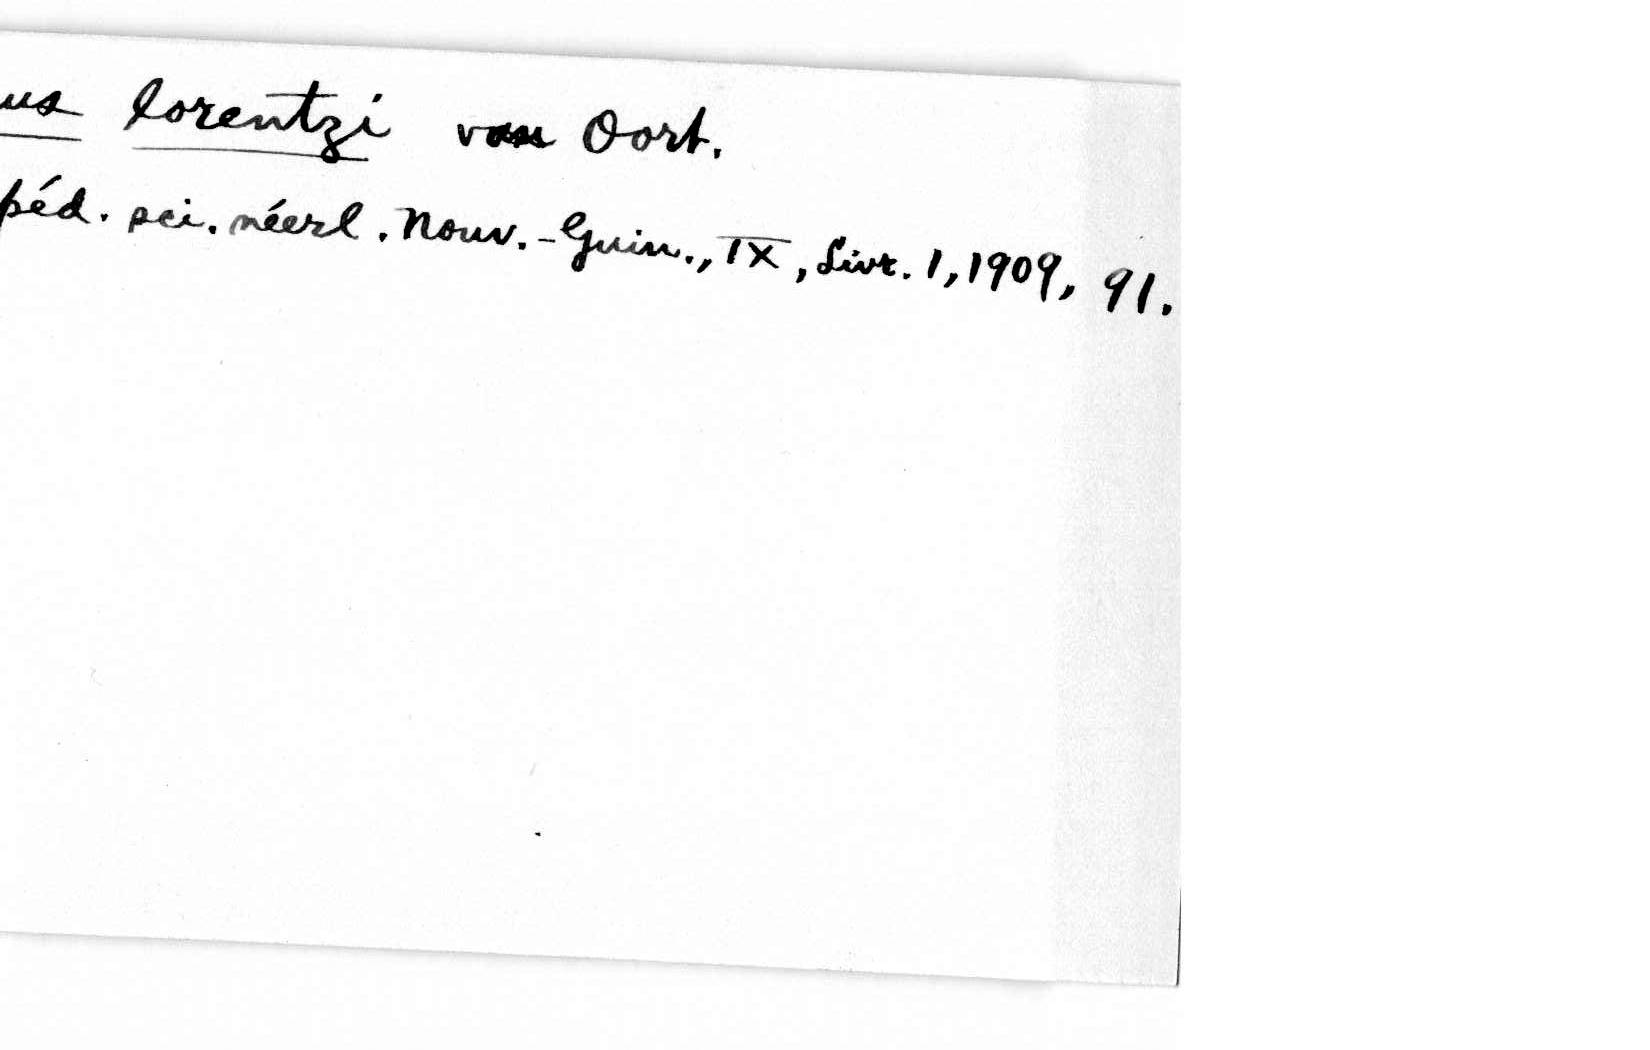 us lorentzi van Oort.
péd. sci. néerl. Nouv.-Guin., IX, Livr. 1, 1909, 91.